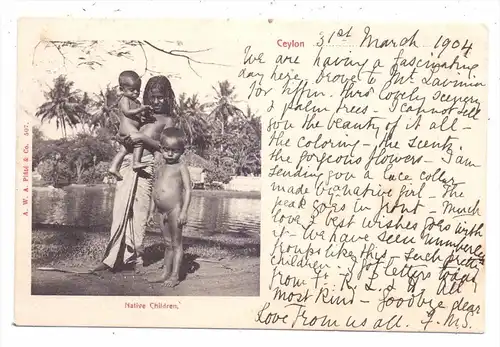 Ceylon 31st March 1904
We are having a fascinating
day here, drove to Mt. Lavinia
for tiffin. thro' lovely scenery
& palm trees - I cannot tell
you the beauty of it all -
the coloring - the scent,
the gorgeous flowers - I am
sending you a lace collar
made by a native girl - The
peak goes in front - Much
love & best wishes goes with
it - We have seen numbers
groups like this, such pretty
children - I got letters today
from H. R. L. & All
most Kind - Goodbye dear
Love from us all.
A. W. A. Plâté & Co. 507.
Native Children.